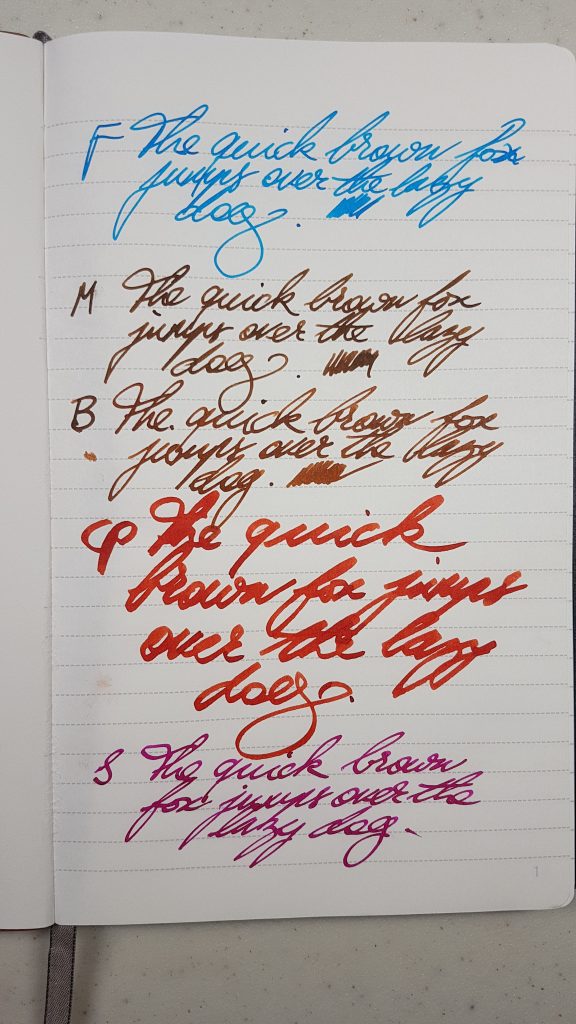 F The quick brown fox
jumps over the lazy
dog.
M The quick brown fox
jumps over the lazy
dog.
B The quick brown fox
jumps over the lazy
dog.
The quick
brown fox jumps
over the lazy
dog.
S The quick brown
fox jumps over the
lazy dog.
1